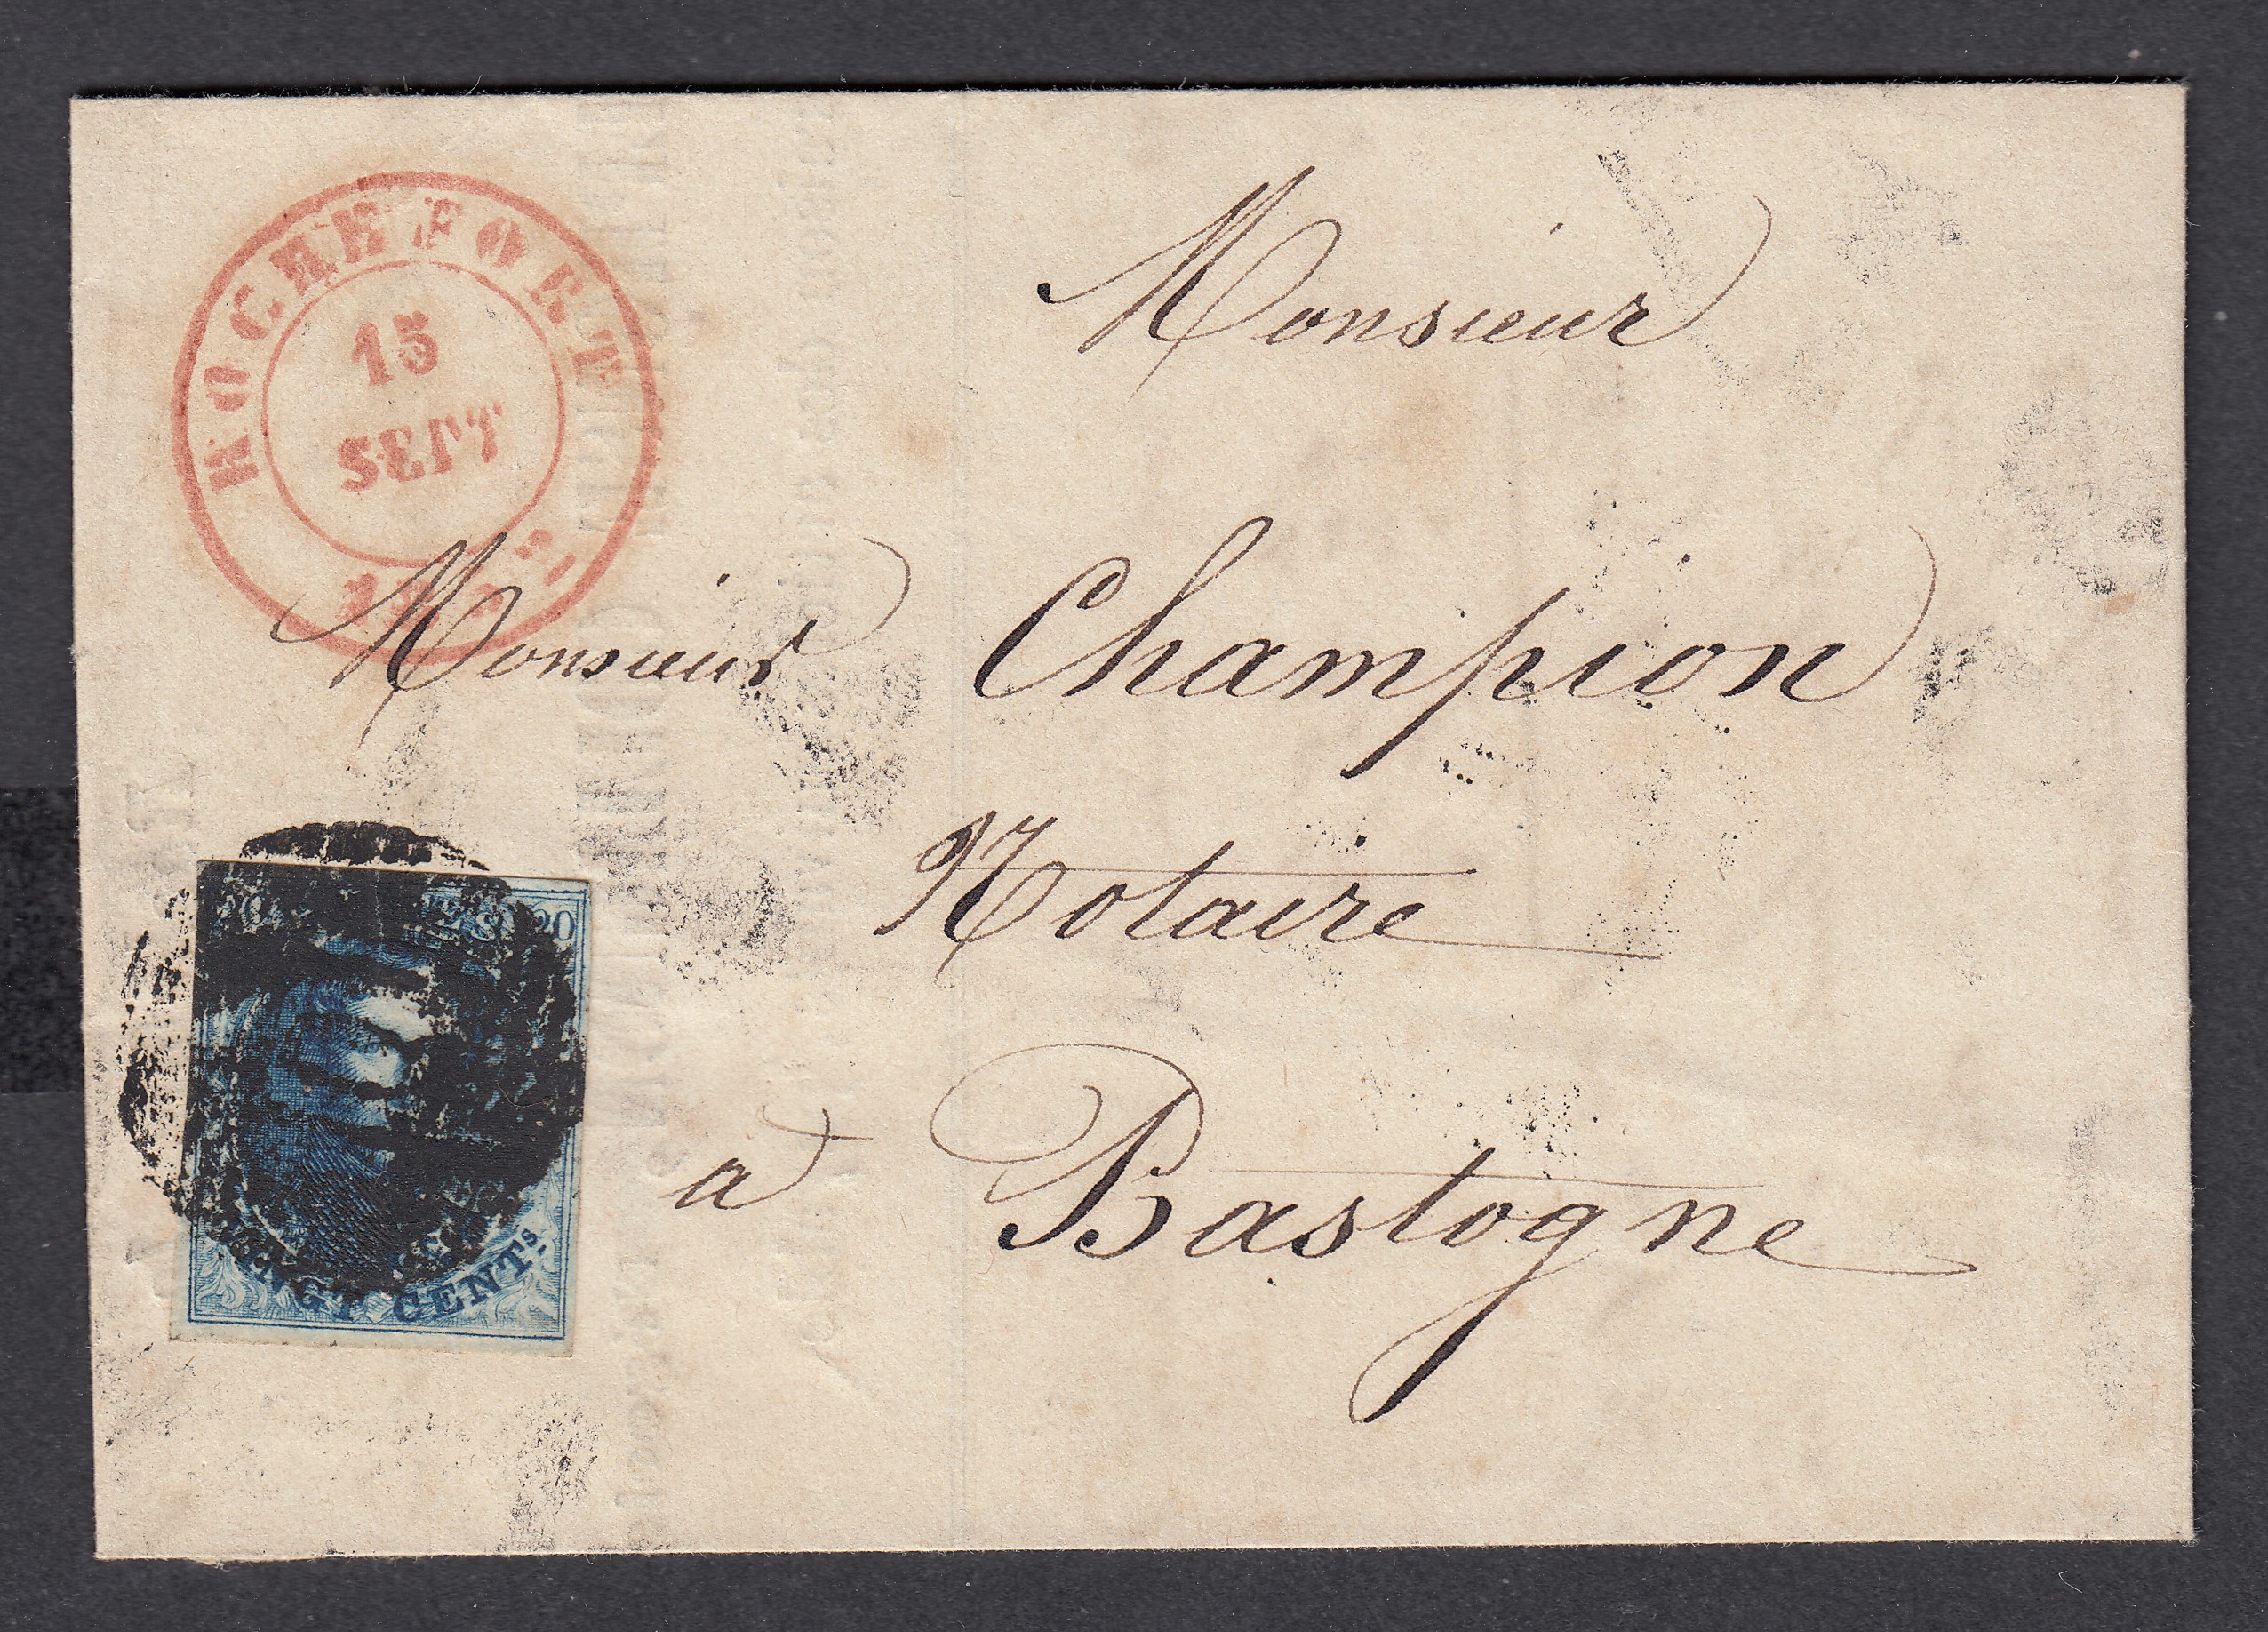 ROCHEFORT
15
SEPT
Monsieur
Monsieur Champion
Notaire
a Bastogne
20
VINGT CENTS.